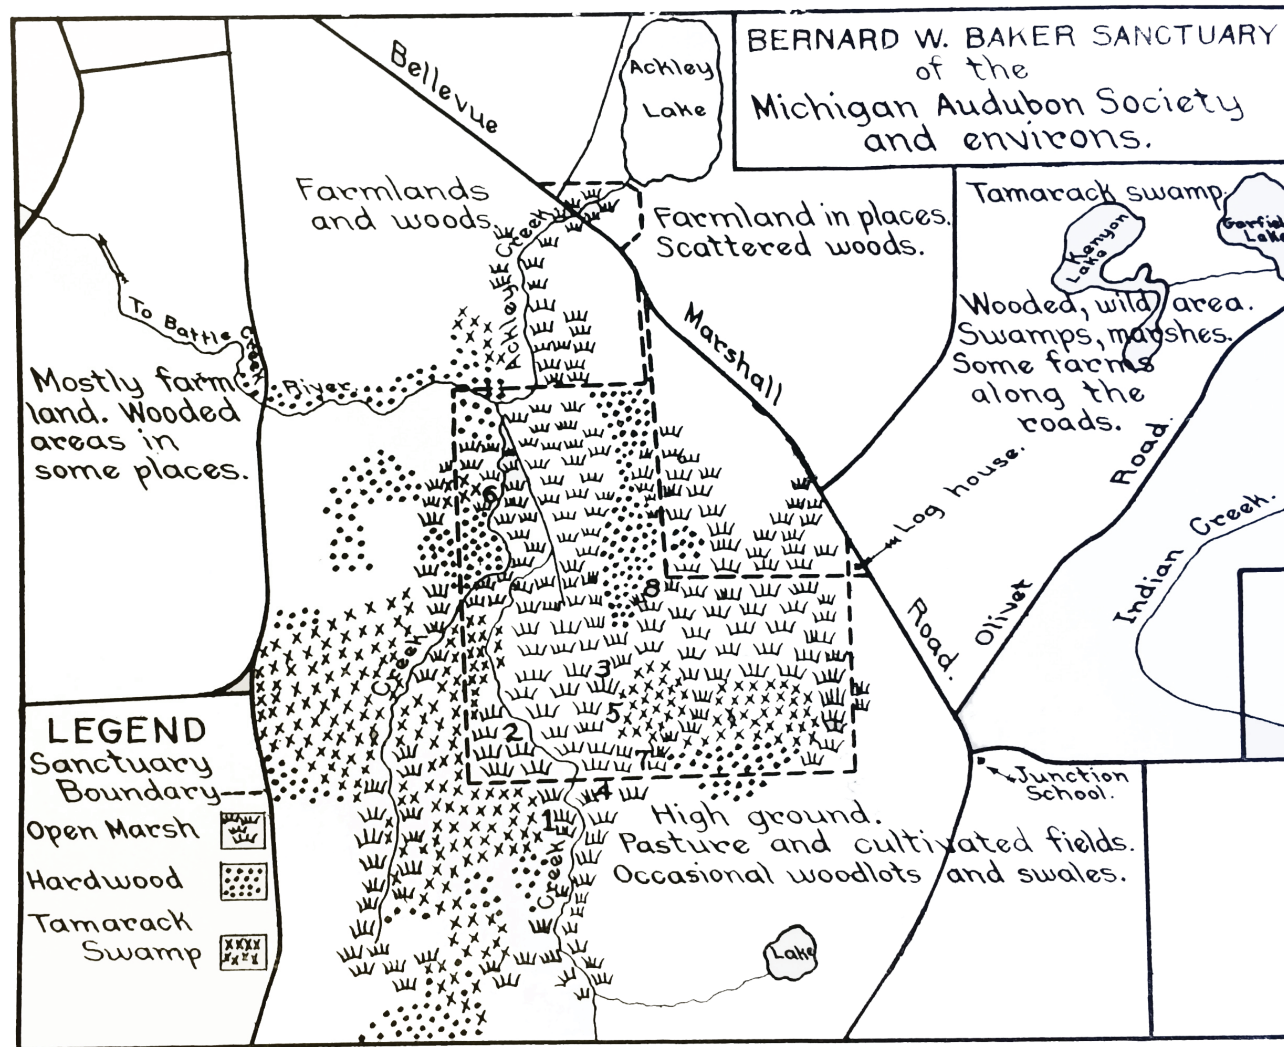 BERNARD W. BAKER SANCTUARY
of the
Michigan Audubon Society
and environs.
Bellevue
Ackley
Lake
Farmlands
and woods.
Farmland in places.
Scattered woods.
Tamarack swamp.
Kenyon
Lake
Garfield
Lake
Wooded, wild area.
Swamps, marshes.
Some farms
along the
roads.
Ackley Creek
To Battle Creek
River
Mostly farm
land. Wooded
areas in
some places.
Marshall
Road.
Log house.
Olivet Road.
Indian Creek.
6
8
3
5
2
7
4
1
Creek
Creek
Junction
School.
High ground.
Pasture and cultivated fields.
Occasional woodlots and swales.
Lake
LEGEND
Sanctuary
Boundary
Open Marsh
Hardwood
Tamarack
Swamp